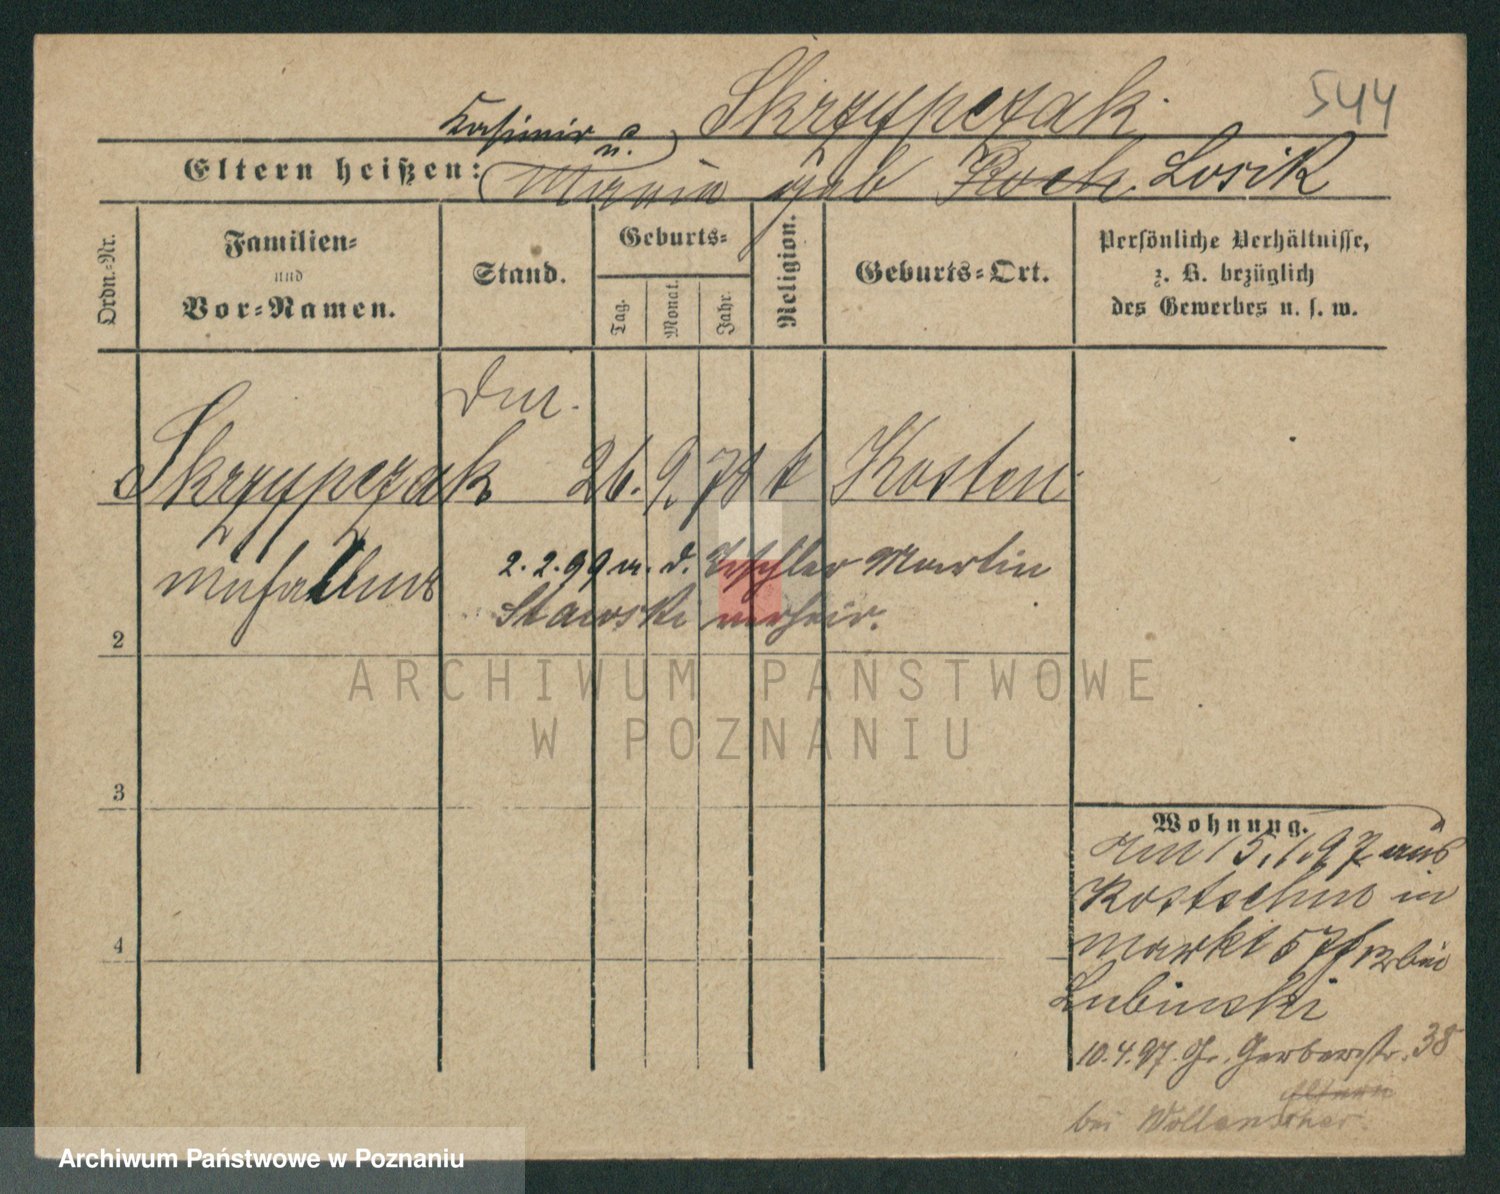 544
Skrzypczak
Kasimir u.
Eltern heißen: Maria geb Roch. Losik
Ordn.-Nr.
Familien-
und
Vor-Namen.
Stand.
Geburts-
Tag.
Monat.
Jahr.
Religion.
Geburts-Ort.
Persönliche Verhältnisse,
z. B. bezüglich
des Gewerbes u. s. w.
Skrzypczak 26. 9. 78 k Kosten
2. 2. 99 m. d. Tischler Martin
Stawski verheir.
2
ARCHIWUM PAŃSTWOWE
W POZNANIU
3
Wohnung.
Am 15.1.97 aus
Kostschin in
Markt 57 bei
Lubinski
4
10.4.97. Gr. Gerberstr. 38
Eltern
bei
Archiwum Państwowe w Poznaniu